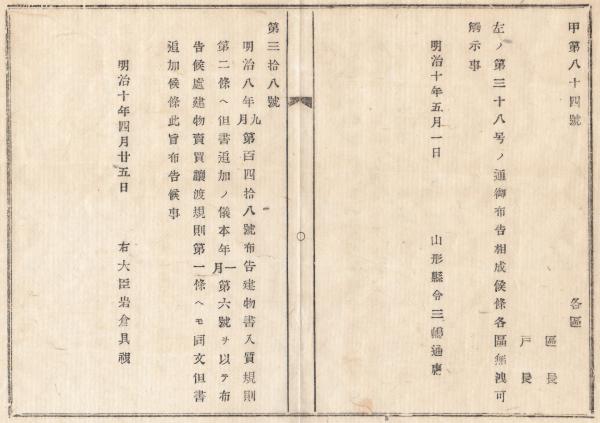 甲第八十四號
各區
區長
戸長
左ノ第三十八号ノ通御布告相成候條各區無洩可
觸示事
明治十年五月一日
山形縣令三島通庸
第三拾八號
明治八年九月第百四拾八號布告建物書入質規則
第二條ヘ但書追加ノ儀本年一月第六號ヲ以テ布
告候處建物賣買讓渡規則第一條ヘモ同文但書
追加候條此旨布告候事
明治十年四月廿五日
右大臣岩倉具視